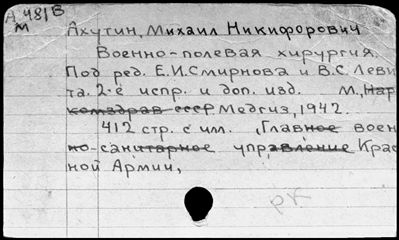 А 481В
М
Ахутин, Михаил Никифорович
Военно-полевая хирургия.
Под ред. Е.И.Смирнова и В.С.Леви-
та. 2-е испр. и доп. изд. М., Нар
комздрав СССР Медгиз, 1942.
412 стр. с илл. (Главное воен
но-санитарное управление Крас
ной Армии,
рк